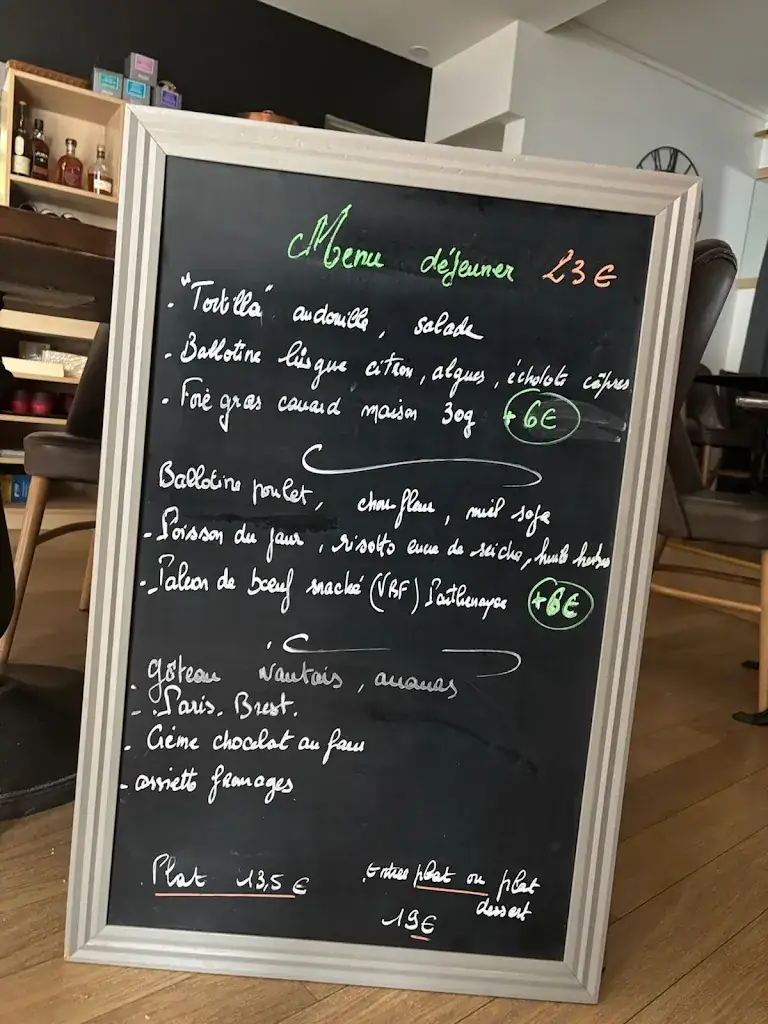 Menu déjeuner 23 €
- "Tortilla" andouille, salade
- Ballotine citron, algues, échalote câpres
- Foie gras canard maison 30g +6€
Ballotine poulet, chou fleur, miel soja
- Poisson du jour, risotto encre de seiche, huile herbes
- Paleron de bœuf snacké (VBF) Parthenayse +6€
- gâteau Nantais, ananas
- Paris. Brest.
- Crème chocolat au four
- assiette fromages
Plat 13,5 €
Entrée plat ou plat
dessert
19€